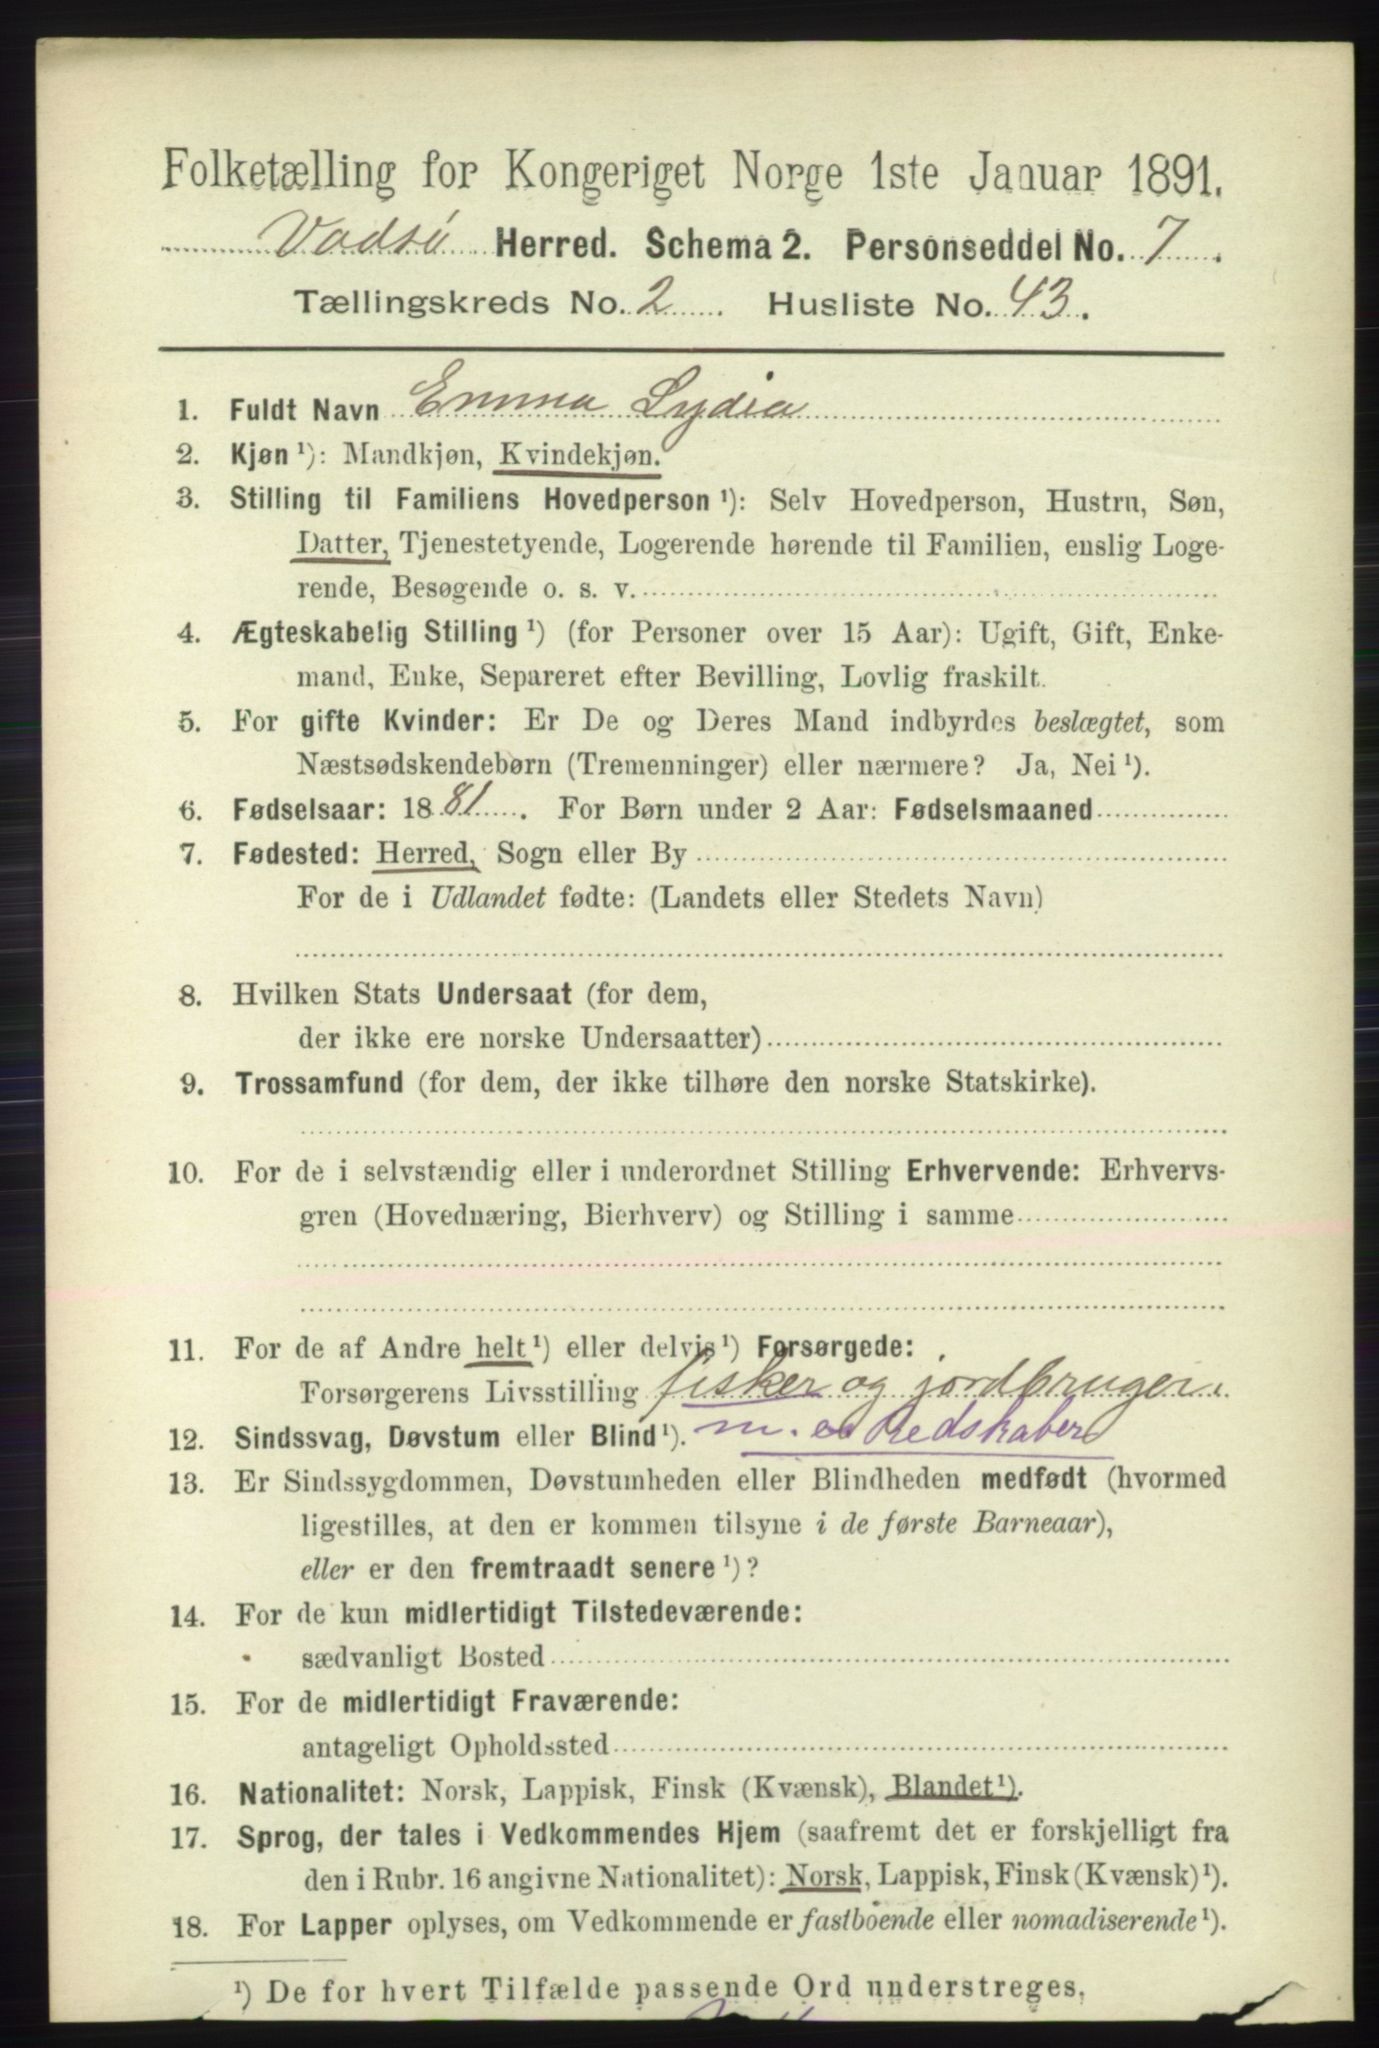 Folketælling for Kongeriget Norge 1ste Januar 1891.
Vadsö Herred. Schema 2. Personseddel No. 7.
Tællingskreds No. 2 Husliste No. 43.
1. Fuldt Navn Emma Lydia
2. Kjøn ¹): Mandkjøn, Kvindekjøn.
3. Stilling til Familiens Hovedperson ¹): Selv Hovedperson, Hustru, Søn,
Datter, Tjenestetyende, Logerende hørende til Familien, enslig Loge-
rende, Besøgende o. s. v.
4. Ægteskabelig Stilling ¹) (for Personer over 15 Aar): Ugift, Gift, Enke-
mand, Enke, Separeret efter Bevilling, Lovlig fraskilt.
5. For gifte Kvinder: Er De og Deres Mand indbyrdes beslægtet, som
Næstsødskendebørn (Tremenninger) eller nærmere? Ja, Nei ¹).
6. Fødselsaar: 1881. For Børn under 2 Aar: Fødselsmaaned
7. Fødested: Herred, Sogn eller By
For de i Udlandet fødte: (Landets eller Stedets Navn)
8. Hvilken Stats Undersaat (for dem,
der ikke ere norske Undersaatter)
9. Trossamfund (for dem, der ikke tilhøre den norske Statskirke).
10. For de i selvstændig eller i underordnet Stilling Erhvervende: Erhvervs-
gren (Hovednæring, Bierhverv) og Stilling i samme
11. For de af Andre helt ¹) eller delvis ¹) Forsørgede:
Forsørgerens Livsstilling fisker og jordbruger.
12. Sindssvag, Døvstum eller Blind ¹). m. Redskaber
13. Er Sindssygdommen, Døvstumheden eller Blindheden medfødt (hvormed
ligestilles, at den er kommen tilsyne i de første Barneaar),
eller er den fremtraadt senere ¹)?
14. For de kun midlertidigt Tilstedeværende:
sædvanligt Bosted
15. For de midlertidigt Fraværende:
antageligt Opholdssted
16. Nationalitet: Norsk, Lappisk, Finsk (Kvænsk), Blandet ¹).
17. Sprog, der tales i Vedkommendes Hjem (saafremt det er forskjelligt fra
den i Rubr. 16 angivne Nationalitet): Norsk, Lappisk, Finsk (Kvænsk) ¹).
18. For Lapper oplyses, om Vedkommende er fastboende eller nomadiserende ¹).
¹) De for hvert Tilfælde passende Ord understreges.